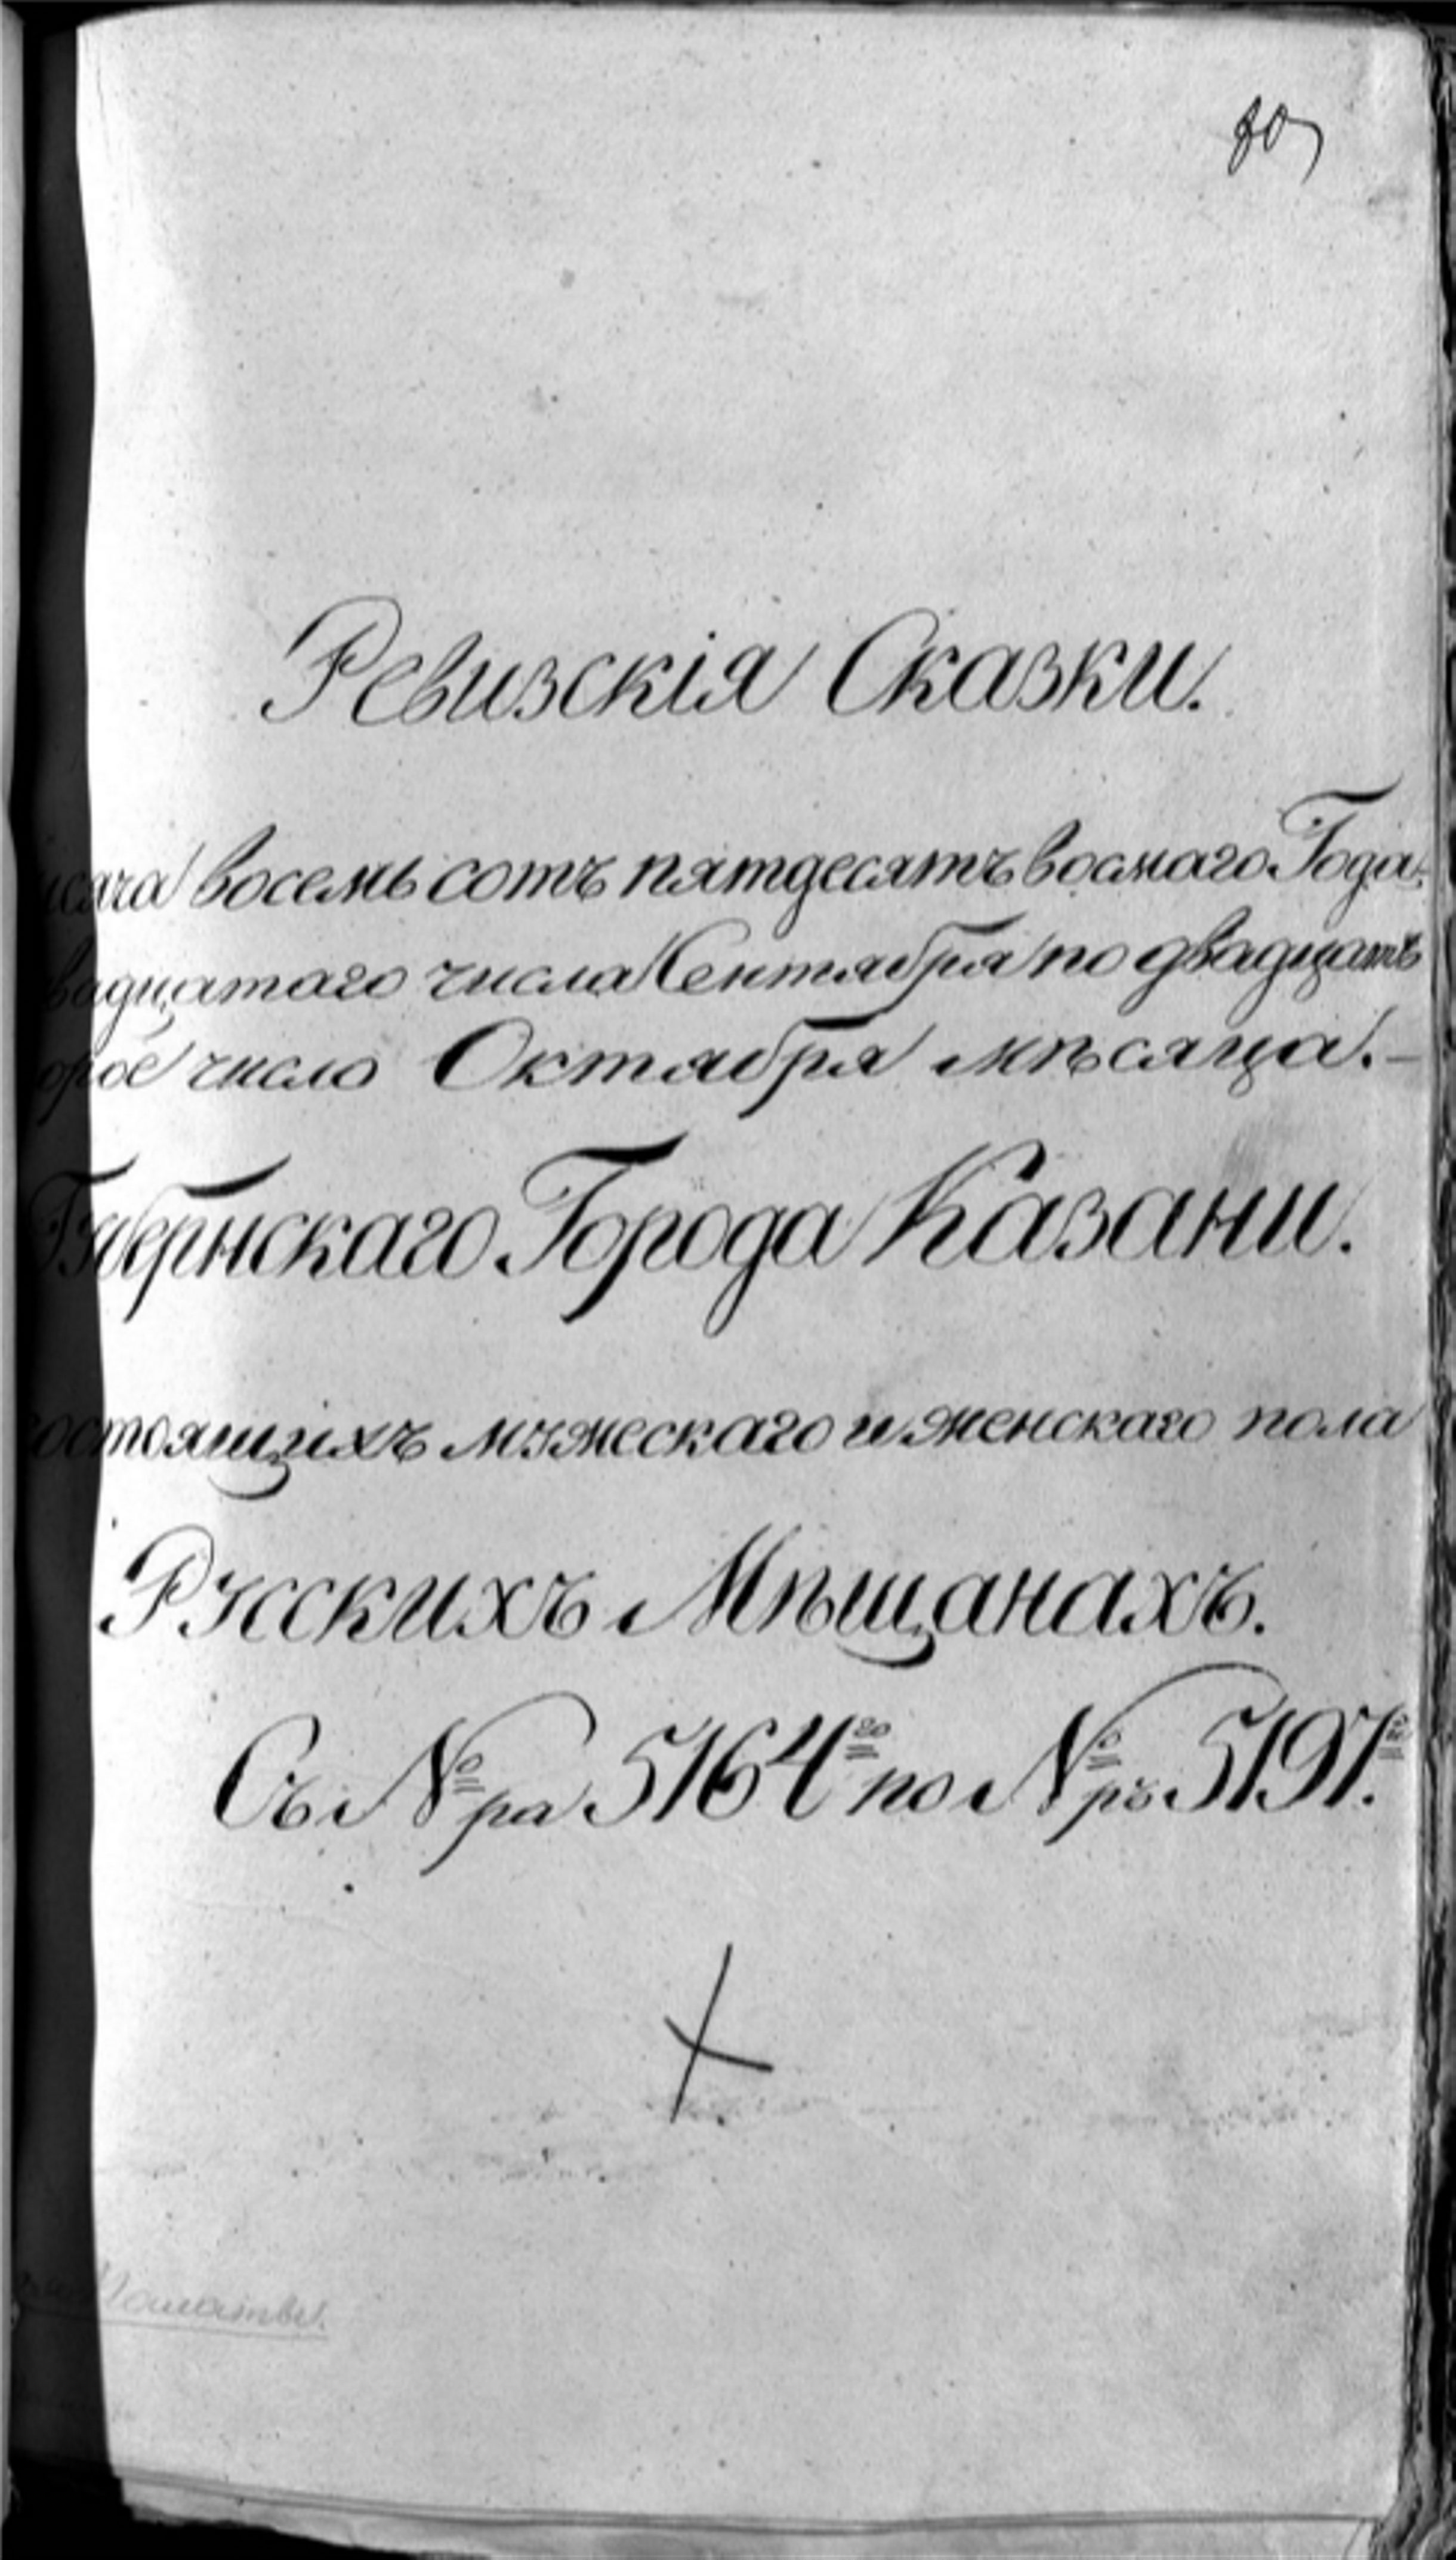 Ревизскія Сказки.
исяча восемь сотъ пятдесятъ восмаго Года.
вадцатаго числа Сентября по двадцать
орое число Октября мѣсяца.–
Губернскаго Города Казани.
остоящихъ мужескаго и женскаго пола
Русскихъ Мѣщанахъ.
Съ №ра 5164го по №ръ 5197й.